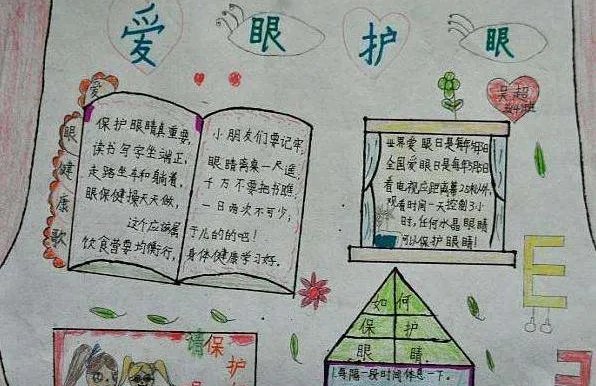 爱眼护眼
爱眼健康歌
保护眼睛真重要,
读书写字坐端正,
走路坐车和躺着,
眼保健操天天做,
这个应该属
饮食营养均衡行,
小朋友们要记牢,
眼睛离桌一尺遥,
千万不要把书瞧,
一日两次不可少,
于儿的的吧!
身体健康学习好.
吴超
世界爱眼日是每年
全国爱眼日是每年
看电视应距离幕2.5米外,
观看时间一天控制3小
时,任何水晶眼睛
可以保护眼睛!
E
如何
保护
眼睛
1.每隔一段时间休息一下。
请保护